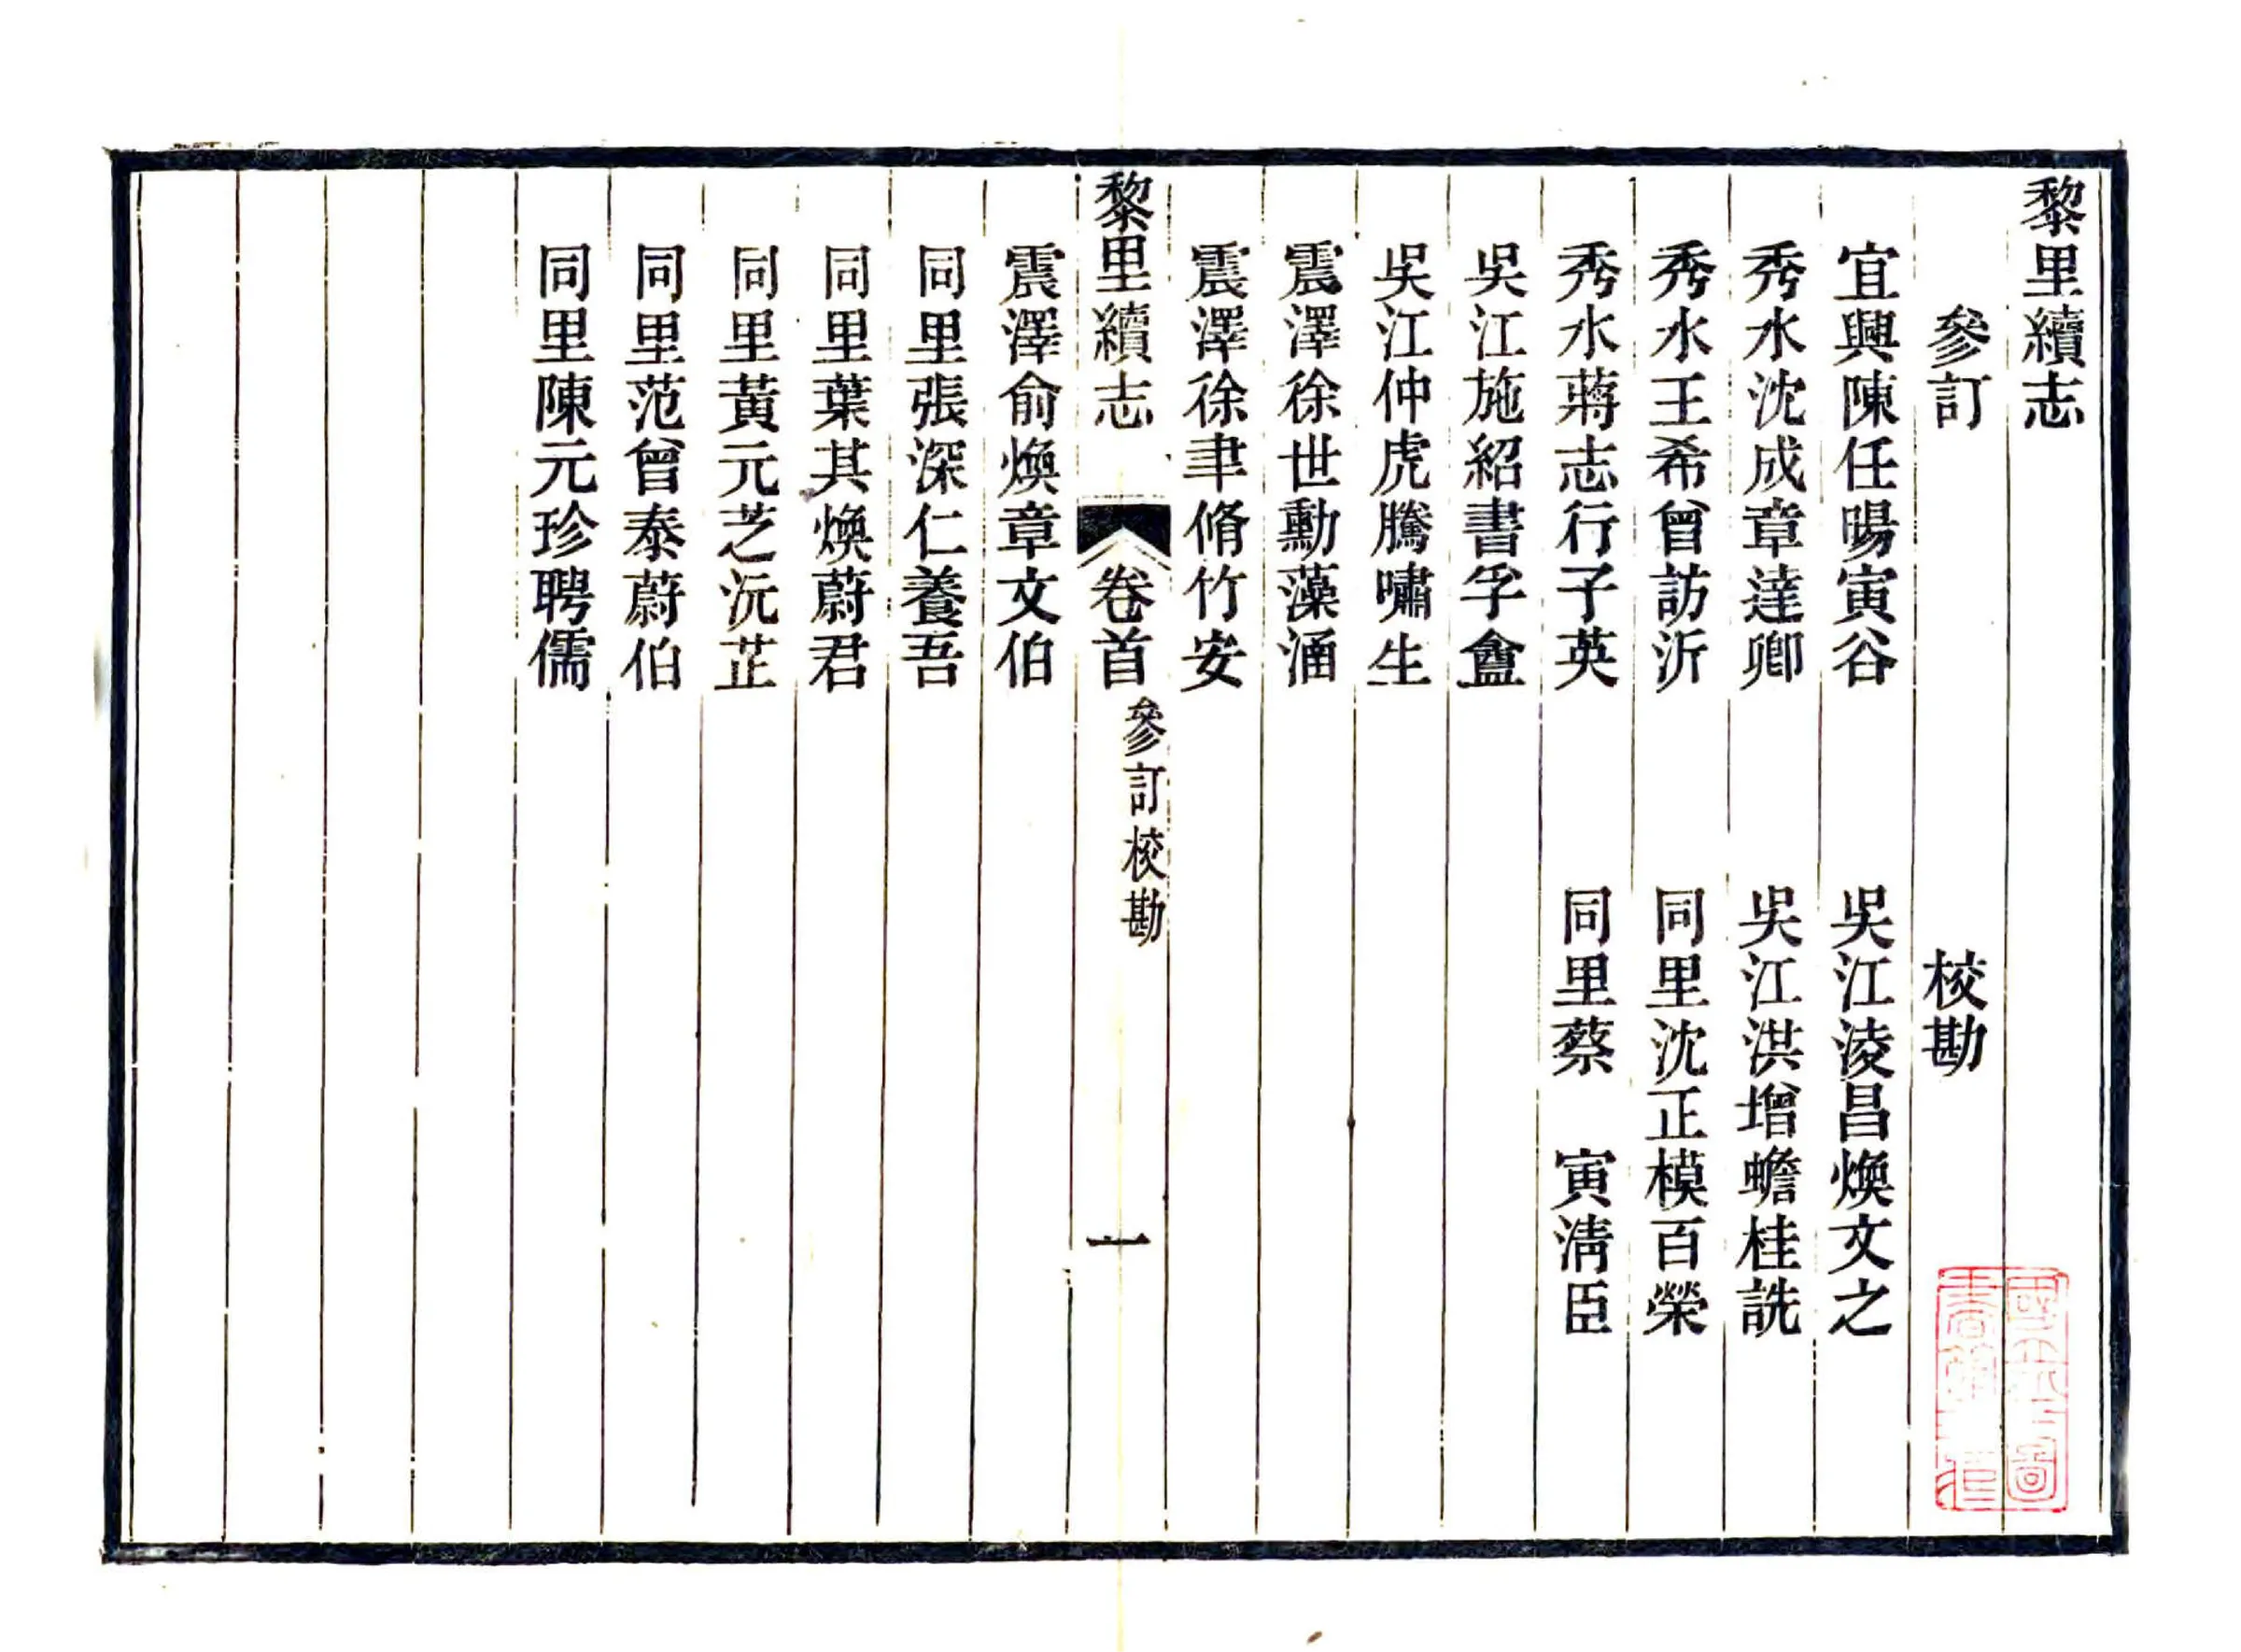 黎里續志
參訂
校勘
宜興陳任暘寅谷
吳江淩昌煥文之
秀水沈成章達卿
吳江洪增蟾桂詵
秀水王希曾訪沂
同里沈正模百榮
秀水蔣志行子英
同里蔡　寅淸臣
吳江施紹書孚盦
吳江仲虎騰嘯生
震澤徐世勳藻涵
震澤徐聿脩竹安
黎里續志
卷首
參訂校勘
一
震澤俞煥章文伯
同里張深仁養吾
同里葉其煥蔚君
同里黃元芝沅芷
同里范曾泰蔚伯
同里陳元珍聘儒